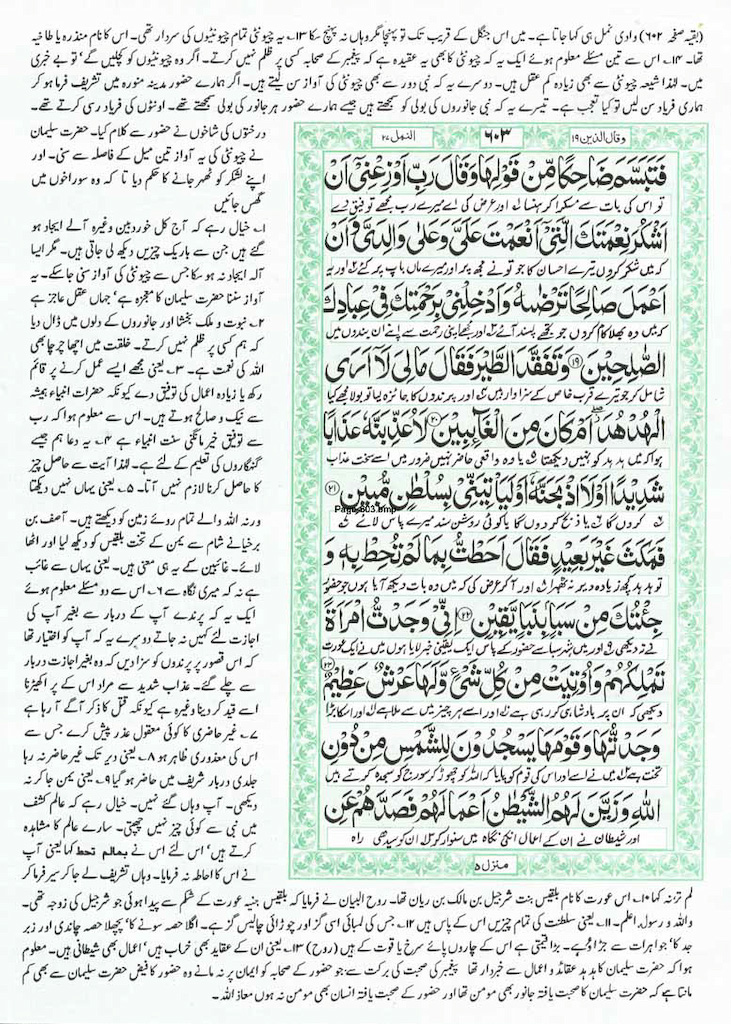 (بقیہ صفحہ ۶۰۲) وادی نمل ہی کہا جاتا ہے۔ میں اس جنگل کے قریب تک تو پہنچا مگر وہاں نہ پہنچ سکا ۱۳۔ یہ چیونٹی تمام چیونٹیوں کی سردار تھی۔ اس کا نام منذرہ یا طاخیہ
تھا۔ ۱۴۔ اس سے تین مسئلے معلوم ہوئے ایک یہ کہ چیونٹی کا بھی یہ عقیدہ ہے کہ پیغمبر کے صحابہ کسی پر ظلم نہیں کرتے۔ اگر وہ چیونٹیوں کو کچلیں گے' تو بے خبری
میں۔ لہٰذا شیعہ چیونٹی سے بھی زیادہ کم عقل ہیں۔ دوسرے یہ کہ نبی دور سے بھی چیونٹی کی آواز سن لیتے ہیں۔ اگر ہمارے حضور مدینہ منورہ میں تشریف فرما ہو کر
ہماری فریاد سن لیں تو کیا تعجب ہے۔ تیسرے یہ کہ نبی جانوروں کی بولی کو سمجھتے ہیں جیسے ہمارے حضور ہر جانور کی بولی سمجھتے تھے۔ اونٹوں کی فریاد رسی کرتے تھے۔
درختوں کی شاخوں نے حضور سے کلام کیا۔ حضرت سلیمان
نے چیونٹی کی یہ آواز تین میل کے فاصلہ سے سنی۔ اور
اپنے لشکر کو ٹھہر جانے کا حکم دیا تا کہ وہ سوراخوں میں
گھس جائیں
۱۔ خیال رہے کہ آج کل خوردبین وغیرہ آلے ایجاد ہو
گئے ہیں جن سے باریک چیزیں دیکھ لی جاتی ہیں۔ مگر ایسا
آلہ ایجاد نہ ہو سکا جس سے چیونٹی کی آواز سنی جا سکے۔ یہ
آواز سننا حضرت سلیمان کا معجزہ ہے' جہاں عقل عاجز ہے
۲۔ نبوت و ملک بخشا اور جانوروں کے دلوں میں ڈال دیا
کہ ہم کسی پر ظلم نہیں کرتے۔ خلقت میں اچھا چرچا بھی
اللہ کی نعمت ہے۔ ۳۔ یعنی مجھے ایسے عمل کرنے پر قائم
رکھ یا زیادہ اعمال کی توفیق دے کیونکہ حضرات انبیاء ہمیشہ
سے نیک و صالح ہوتے ہیں۔ اس سے معلوم ہوا کہ رب
سے توفیق خیر مانگنی سنت انبیاء ہے ۴۔ یہ دعا ہم جیسے
گنہگاروں کی تعلیم کے لئے ہے۔ لہٰذا آیت سے حاصل چیز
کا حاصل کرنا لازم نہیں آتا۔ ۵۔ یعنی یہاں نہیں دیکھتا
ورنہ اللہ والے تمام روئے زمین کو دیکھتے ہیں۔ آصف بن
برخیا نے شام سے یمن کے تخت بلقیس کو دیکھ لیا اور اٹھا
لائے۔ غائبین کے یہ ہی معنی ہیں۔ یعنی یہاں سے غائب
ہے نہ کہ میری نگاہ سے ۶۔ اس سے دو مسئلے معلوم ہوئے
ایک یہ کہ پرندے آپ کے دربار سے بغیر آپ کی
اجازت لئے کہیں نہ جاتے دوسرے یہ کہ آپ کو اختیار تھا
کہ اس قصور پر پرندوں کو سزا دیں کہ وہ بغیر اجازت دربار
سے چلے گئے۔ عذاب شدید سے مراد اس کے پر اکھیڑنا
اسے قید کر دینا وغیرہ ہے کیونکہ قتل کا ذکر آگے آ رہا ہے
۷۔ غیر حاضری کا کوئی معقول عذر پیش کرے جس سے
اس کی معذوری ظاہر ہو ۸۔ یعنی دیر تک غیر حاضر نہ رہا
جلدی دربار شریف میں حاضر ہو گیا ۹۔ یعنی یمن جا کر نہ
دیکھی۔ آپ وہاں گئے نہیں۔ خیال رہے کہ عالم کشف
میں نبی سے کوئی چیز نہیں چھپتی۔ سارے عالم کا مشاہدہ
کرتے ہیں' اس لئے اس نے بمالم تحط کہا یعنی آپ
نے اس کا احاطہ نہ فرمایا۔ وہاں تشریف لے جا کر سیر فرما کر
وقال الذین ۱۹
۶۰۳
النمل ۲۷
فَتَبَسَّمَ ضَاحِكًا مِّنْ قَوْلِهَا وَقَالَ رَبِّ اَوْزِعْنِیْۤ اَنْ
تو اس کی بات سے مسکرا کر ہنسا اور عرض کی اے میرے رب مجھے توفیق دے
اَشْكُرَ نِعْمَتَكَ الَّتِیْۤ اَنْعَمْتَ عَلَیَّ وَعَلٰی وَالِدَیَّ وَاَنْ
کہ میں شکر کروں تیرے احسان کا جو تو نے مجھ پر اور میرے ماں باپ پر کئے اور یہ
اَعْمَلَ صَالِحًا تَرْضٰىهُ وَاَدْخِلْنِیْ بِرَحْمَتِكَ فِیْ عِبَادِكَ
کہ میں وہ بھلا کام کروں جو تجھے پسند آئے اور مجھے اپنی رحمت سے اپنے ان بندوں میں
الصّٰلِحِیْنَ ۱۹ وَتَفَقَّدَ الطَّیْرَ فَقَالَ مَالِیَ لَاۤ اَرَی
شامل کر جو تیرے قرب خاص کے سزاوار ہیں اور پرندوں کا جائزہ لیا تو بولا مجھے کیا
الْهُدْهُدَ اَمْ كَانَ مِنَ الْغَآئِبِیْنَ ۲۰ لَاُعَذِّبَنَّهٗ عَذَابًا
ہوا کہ میں ہدہد کو نہیں دیکھتا یا وہ واقعی حاضر نہیں ضرور میں اسے سخت عذاب
شَدِیْدًا اَوْ لَاَاذْبَحَنَّهٗۤ اَوْ لَیَاْتِیَنِّیْ بِسُلْطٰنٍ مُّبِیْنٍ ۲۱
کروں گا یا ذبح کر دوں گا یا کوئی روشن سند میرے پاس لائے
Page 603.bmp
فَمَكَثَ غَیْرَ بَعِیْدٍ فَقَالَ اَحَطْتُّ بِمَا لَمْ تُحِطْ بِهٖ وَ
تو ہدہد کچھ زیادہ دیر نہ ٹھہرا اور آ کر عرض کی کہ میں وہ بات دیکھ آیا ہوں جو حضور
جِئْتُكَ مِنْ سَبَاٍۭ بِنَبَاٍ یَّقِیْنٍ ۲۲ اِنِّیْ وَجَدْتُّ امْرَاَةً
نے نہ دیکھی اور میں شہر سبا سے حضور کے پاس ایک یقینی خبر لایا ہوں میں نے ایک عورت
تَمْلِكُهُمْ وَاُوْتِیَتْ مِنْ كُلِّ شَیْءٍ وَّلَهَا عَرْشٌ عَظِیْمٌ ۲۳
دیکھی کہ ان پر بادشاہی کر رہی ہے اور اسے ہر چیز میں سے ملا ہے اور اس کا بڑا
وَجَدْتُّهَا وَقَوْمَهَا یَسْجُدُوْنَ لِلشَّمْسِ مِنْ دُوْنِ
تخت ہے میں نے اسے اور اس کی قوم کو پایا کہ اللہ کو چھوڑ کر سورج کو سجدہ کرتے ہیں
اللّٰهِ وَزَیَّنَ لَهُمُ الشَّیْطٰنُ اَعْمَالَهُمْ فَصَدَّهُمْ عَنِ
اور شیطان نے ان کے اعمال انکی نگاہ میں سنوار کر ان کو سیدھی راہ
منزل ۵
لم تزنہ کہا ۱۰۔ اس عورت کا نام بلقیس بنت شرجیل بن مالک بن ریان تھا۔ روح البیان نے فرمایا کہ بلقیس بنیہ عورت کے شکم سے پیدا ہوئی جو شرجیل کی زوجہ تھی۔
واللہ و رسولہ اعلم۔ ۱۱۔ یعنی سلطنت کی تمام چیزیں اس کے پاس ہیں ۱۲۔ جس کی لمبائی اسی گز اور چوڑائی چالیس گز ہے۔ اگلا حصہ سونے کا' پچھلا حصہ چاندی اور زبر
جد کا' جواہرات سے جڑاؤ ہے۔ بڑا قیمتی ہے اس کے چاروں پائے سرخ یاقوت کے ہیں (روح) ۱۳۔ یعنی ان کے عقاید بھی خراب ہیں' اعمال بھی شیطانی ہیں۔ معلوم
ہوا کہ حضرت سلیمان کا ہدہد عقائد و اعمال سے خبردار تھا پیغمبر کی صحبت کی برکت سے جو حضور کے صحابہ کو ایمان پر نہ مانے وہ حضور کا فیض حضرت سلیمان سے بھی کم
مانتا ہے کہ حضرت سلیمان کا صحبت یافتہ جانور بھی مومن تھا اور حضور کے صحبت یافتہ انسان بھی مومن نہ ہوں معاذ اللہ۔